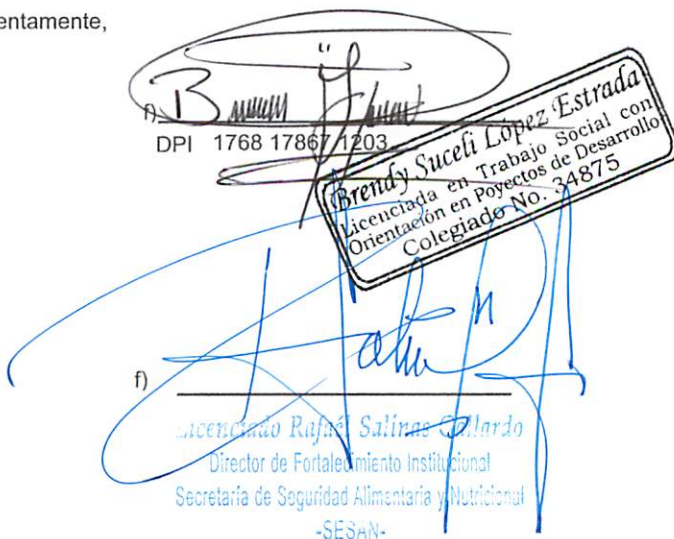 entamente,
f)
DPI 1768 17867 1203
Brendy Suceli López Estrada
Licenciada en Trabajo Social con
Orientación en Poyectos de Desarrollo
Colegiado No. 34875
f)
Licenciado Rafael Salinas Gallardo
Director de Fortalecimiento Institucional
Secretaría de Seguridad Alimentaria y Nutricional
-SESAN-